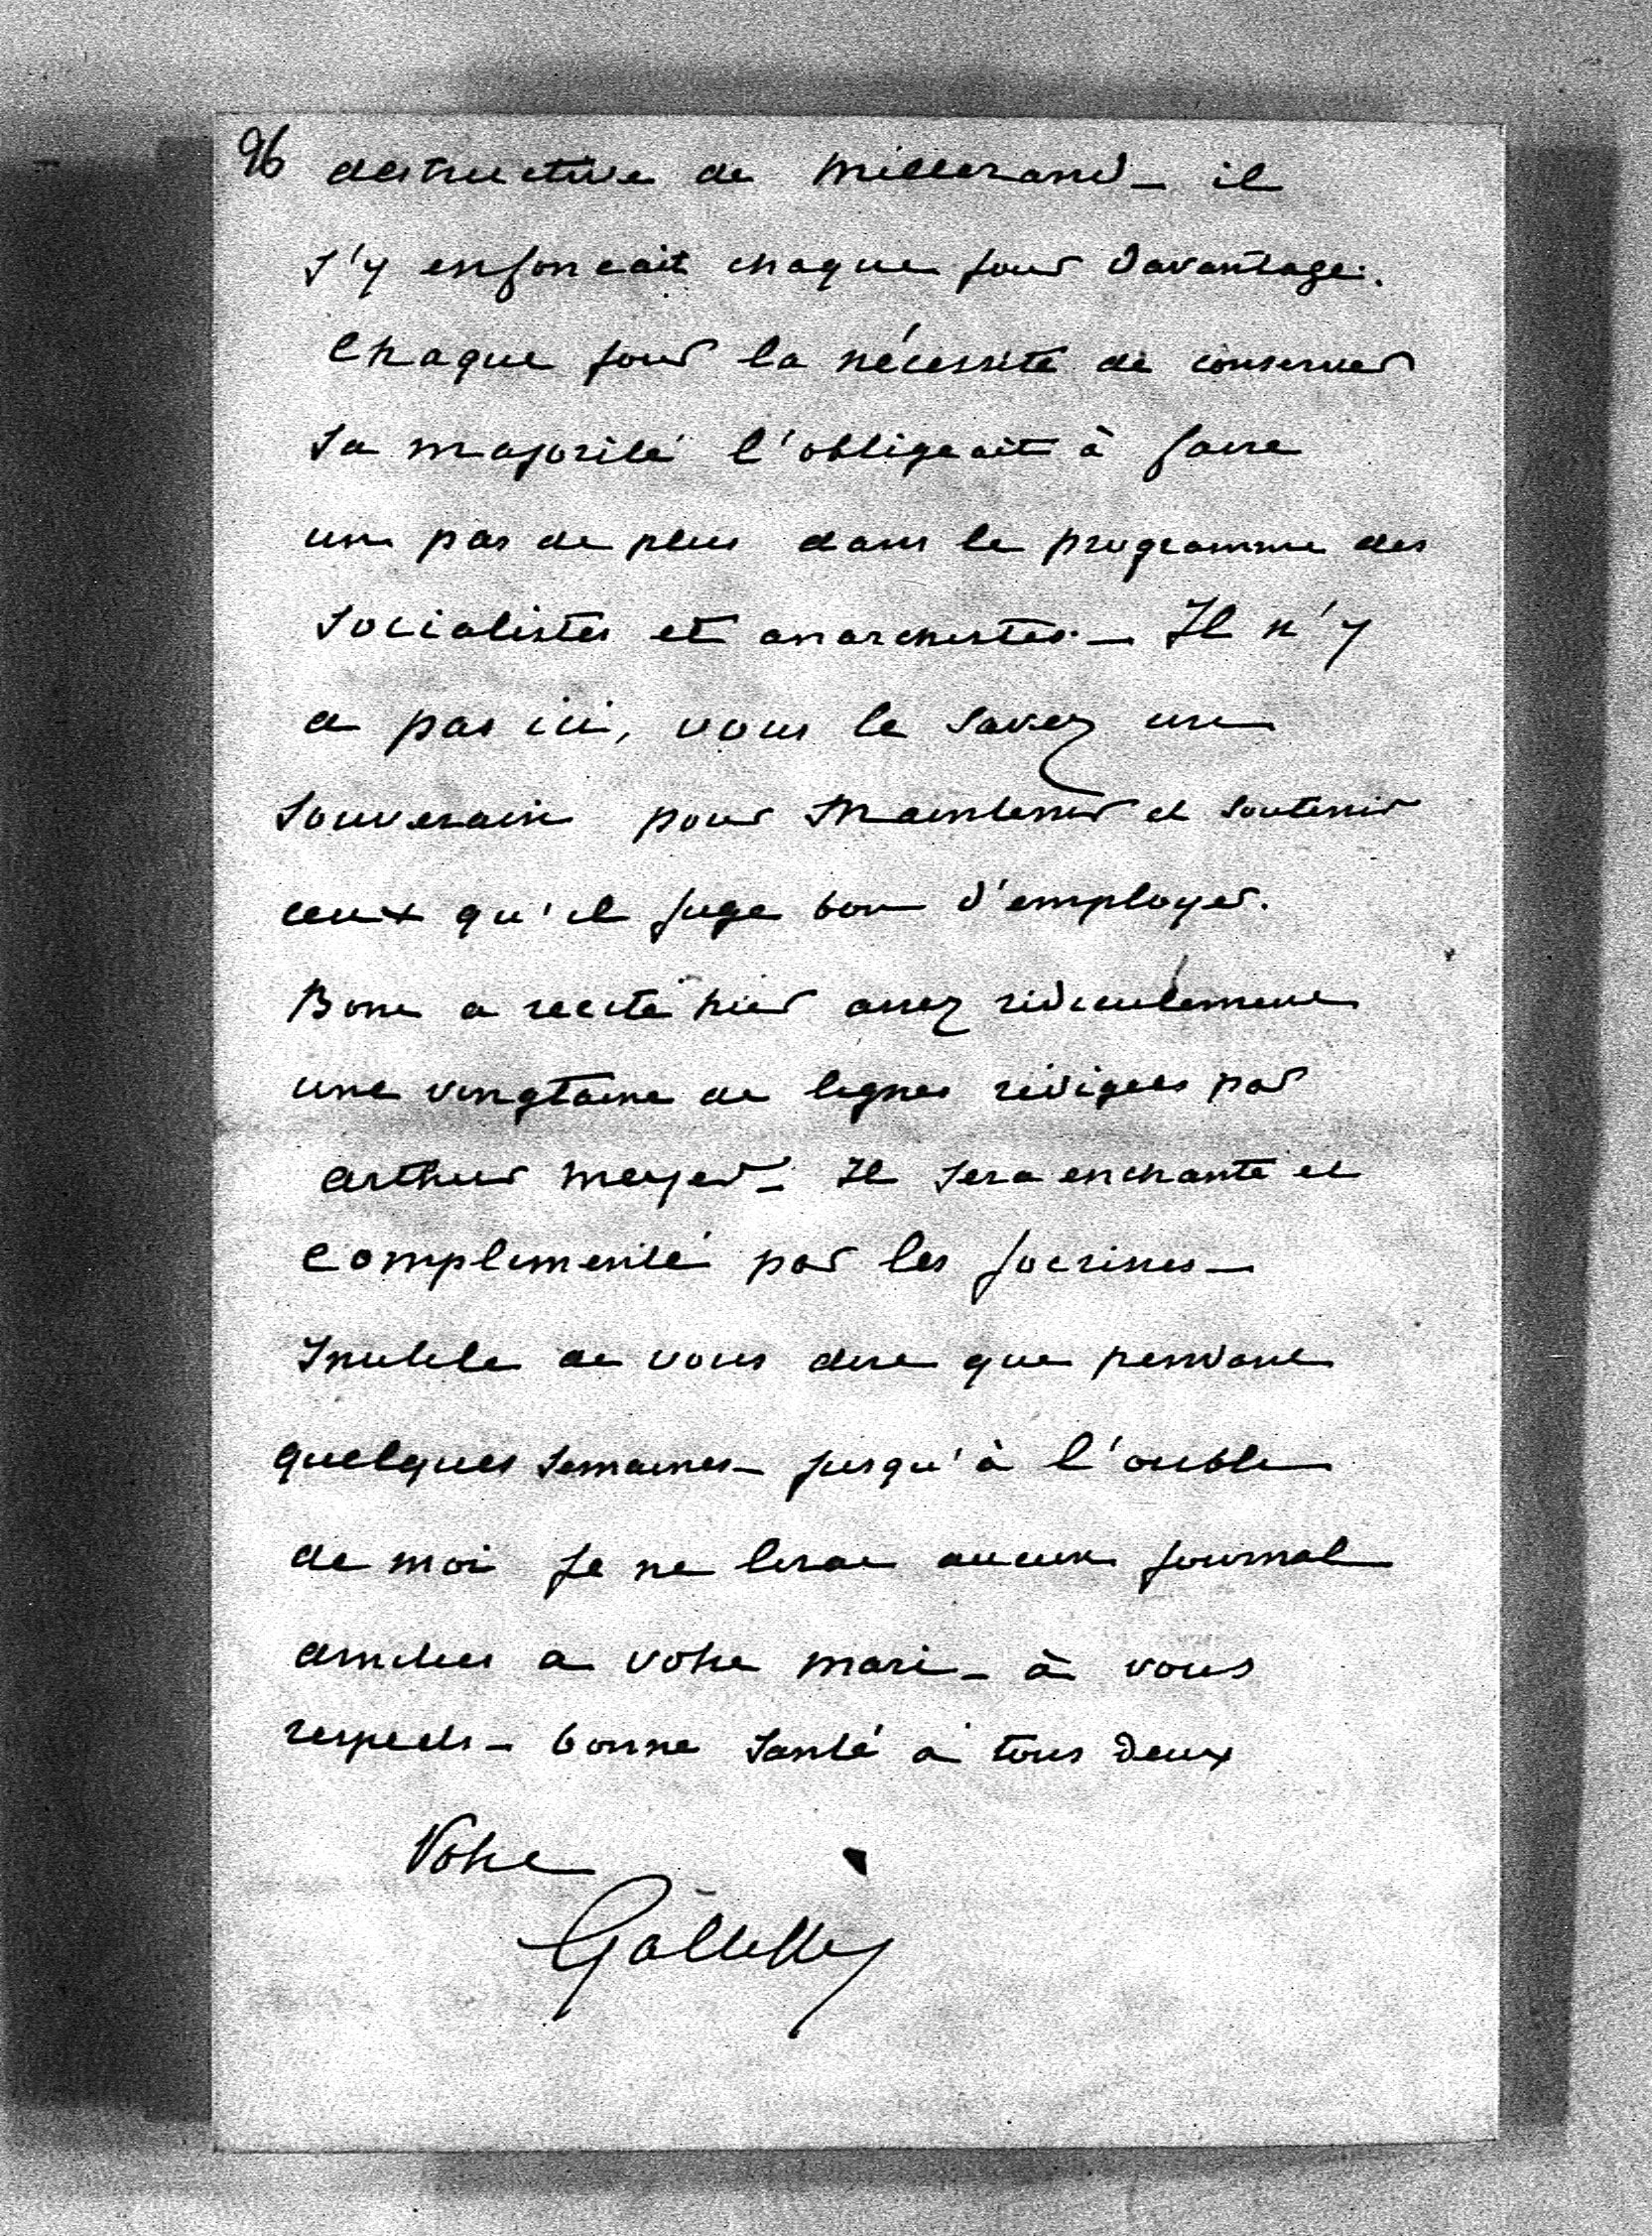 96 destructive de Millerand – il
s'y enfoncait chaque jour davantage.
Chaque jour la nécessité de conserver
sa majorité l'obligeait à faire
un pas de plus dans le programme des
socialistes et anarchistes – Il n'y
a pas ici, vous le savez un
souverain pour maintenir et soutenir
ceux qu'il juge bon d'employer.
Boni a recité hier assez ridiculement
une vingtaine de lignes rédigées par
Arthur Meyer – Il sera enchanté et
complimenté par les
Inutile de vous dire que pendant
quelques semaines – jusqu'à l'oubli
de moi je ne lirai aucun journal
amitiés a votre mari – à vous
respects – bonne santé à tous deux
Votre
Galliffet